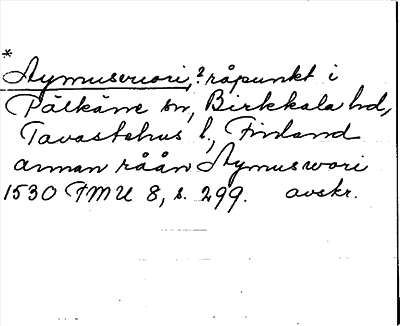 *
Aymusvuori, ? råpunkt i
Pälkäne sn, Birkkala hd,
Tavastehus l, Finland
annan råån Aymuswori
1530 FMU 8, s. 299. avskr.